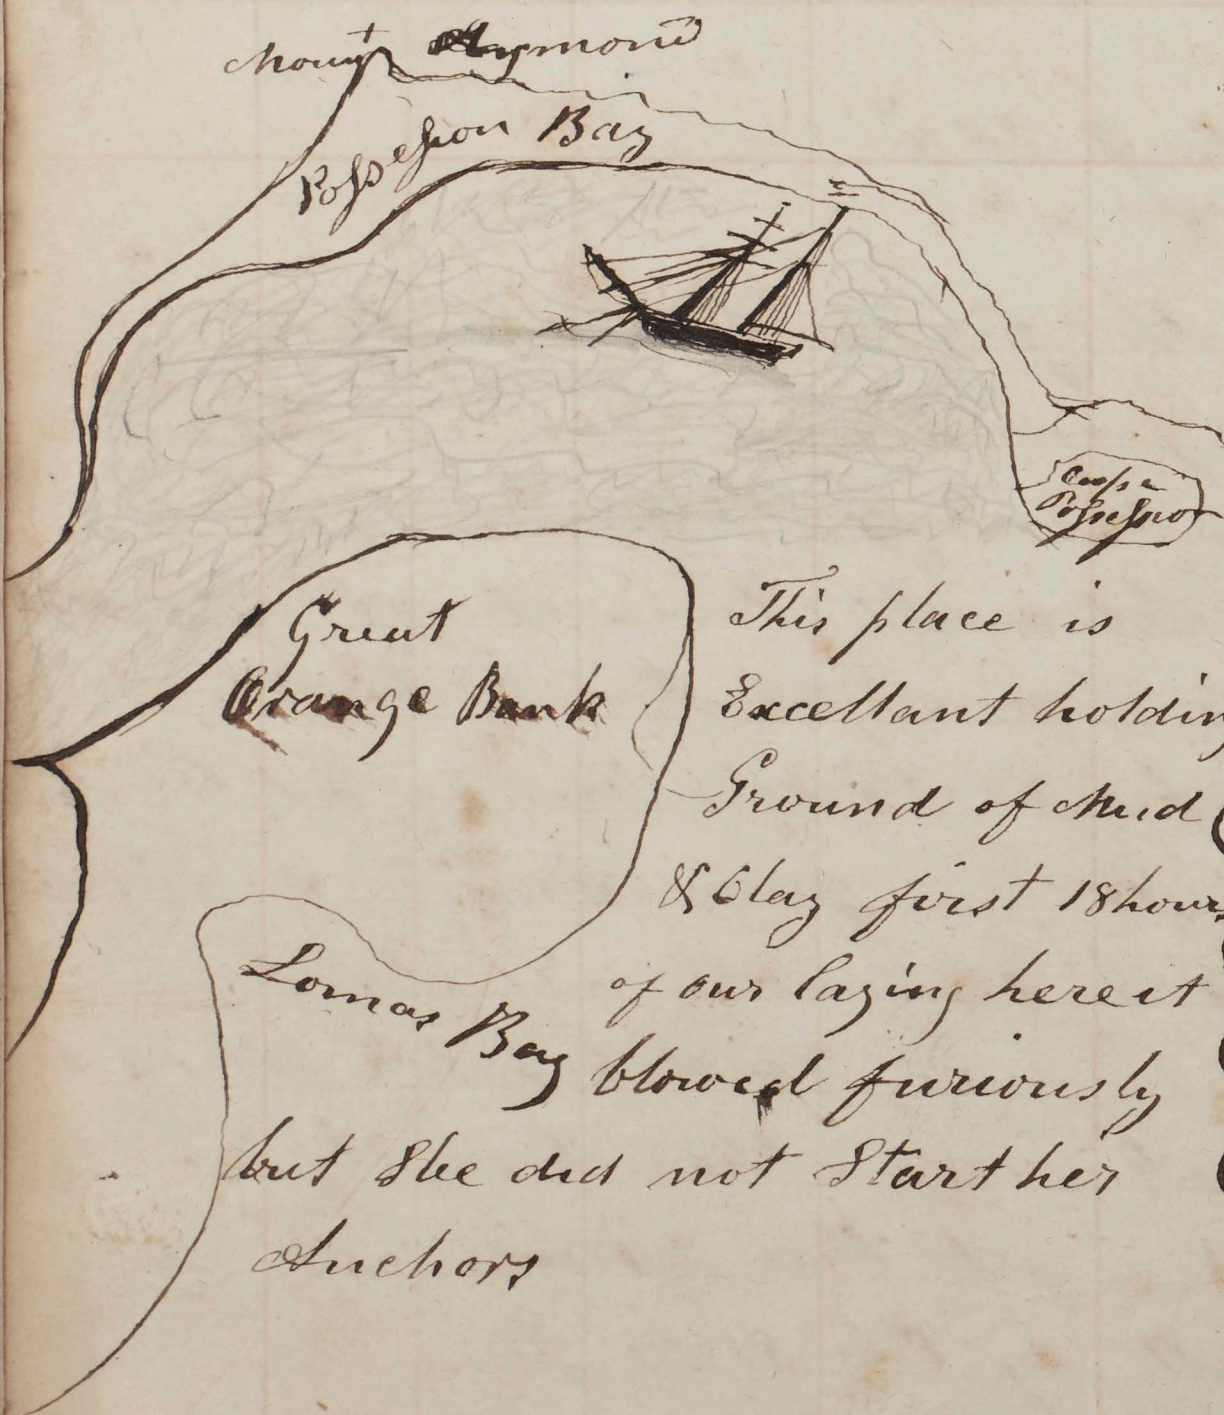 Mount Aymond
Possession Bay
Cape
Possession
Great
Orange Bank
This place is
Excellant holding
Ground of Mud
& Clay first 18 hours
of our laying here it
Lomas Bay
blowed furiously
but She did not Start her
Anchors